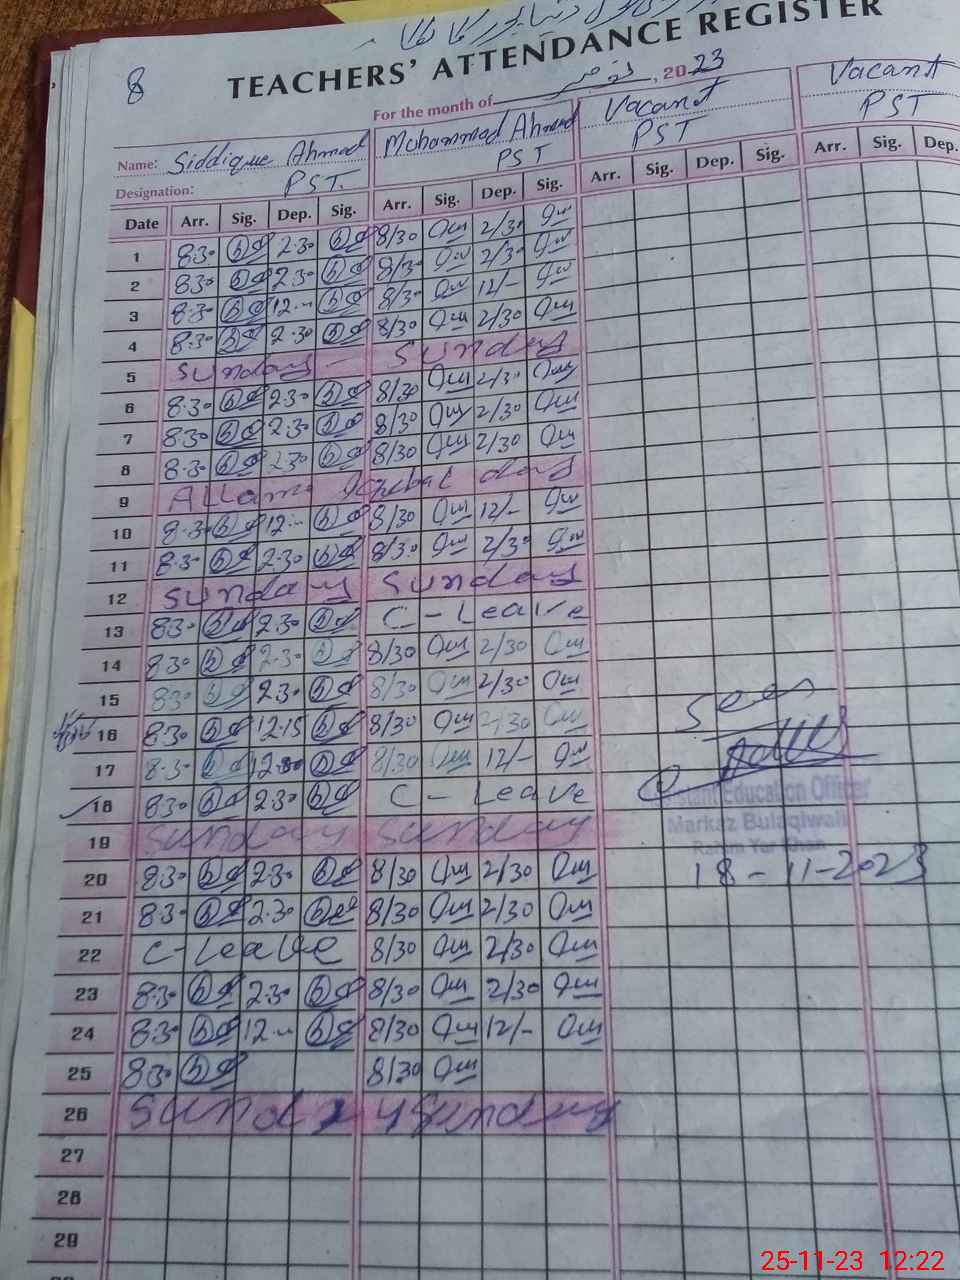 8
TEACHERS' ATTENDANCE REGISTER
For the month of نومبر, 2023
Name: Siddique Ahmad Muhammad Ahmad Vacant Vacant
Designation: PST. PST PST PST
Date Arr. Sig. Dep. Sig. Arr. Sig. Dep. Sig. Arr. Sig. Dep. Sig. Arr. Sig. Dep.
1 8.30 2.30 8/30 2/30
2 8.30 2.30 8/30 2/30
3 8.30 12.— 8/30 12/-
4 8.30 2.30 8/30 2/30
5 Sunday — Sunday
6 8.30 2.30 8/30 2/30
7 8.30 2.30 8/30 2/30
8 8.30 2.30 8/30 2/30
9 Allama Iqbal day
10 8.30 12.— 8/30 12/-
11 8.30 2.30 8/30 2/30
12 Sunday Sunday
13 8.30 2.30 C-Leave
14 8.30 2.30 8/30 2/30
15 8.30 2.30 8/30 2/30
16 8.30 12.15 8/30 2/30
17 8.30 8/30 12/-
18 8.30 2.30 C-Leave
19 Sunday Sunday
20 8.30 2.30 8/30 2/30
21 8.30 2.30 8/30 2/30
22 C-Leave 8/30 2/30
23 8.30 2.30 8/30 2/30
24 8.30 12.— 8/30 12/-
25 8.30 8/30
26 Sunday Sunday
27
28
29
Seen
Assistant Education Officer
Markaz Bulaqiwali
Rahim Yar Khan
18-11-2023
25-11-23 12:22